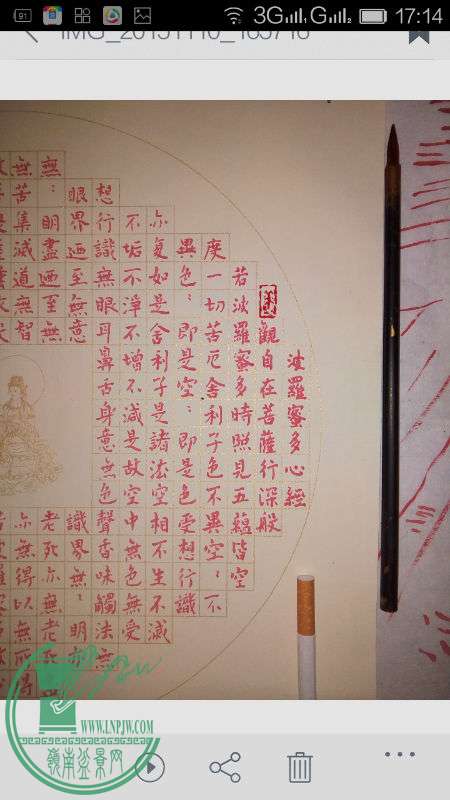 91 3G G 17:14
波羅蜜多心經
觀自在菩薩行深般
若波羅蜜多時照見五蘊皆空
度一切苦厄舍利子色不異空：不
異色：即是空：即是色受想行識
亦复如是舍利子是諸法空相不生不滅
不垢不淨不增不減是故空中無色無受
想行識無眼耳鼻舌身意無色聲香味觸法無
眼界迺至無意識界無：明亦
無：明盡迺至無老死亦無老死
無苦集滅道無智亦無得以無所
WWW.LNPJW.COM
嶺南盆景网